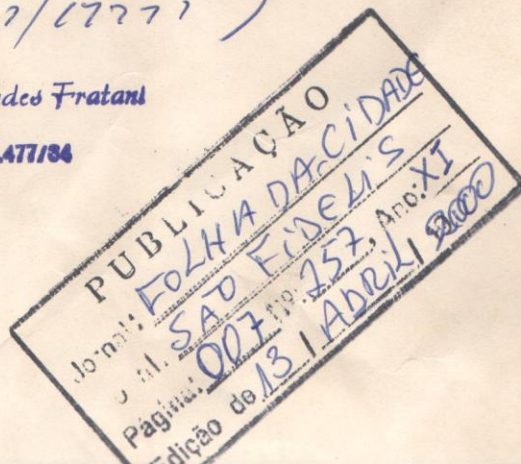 des Fratani
.477/84
PUBLICAÇÃO
Jornal: FOLHA DA CIDADE
SÃO FIDELIS
Página: 007 Nº: 757, Ano: XI
Edição de 13 / ABRIL / 2000